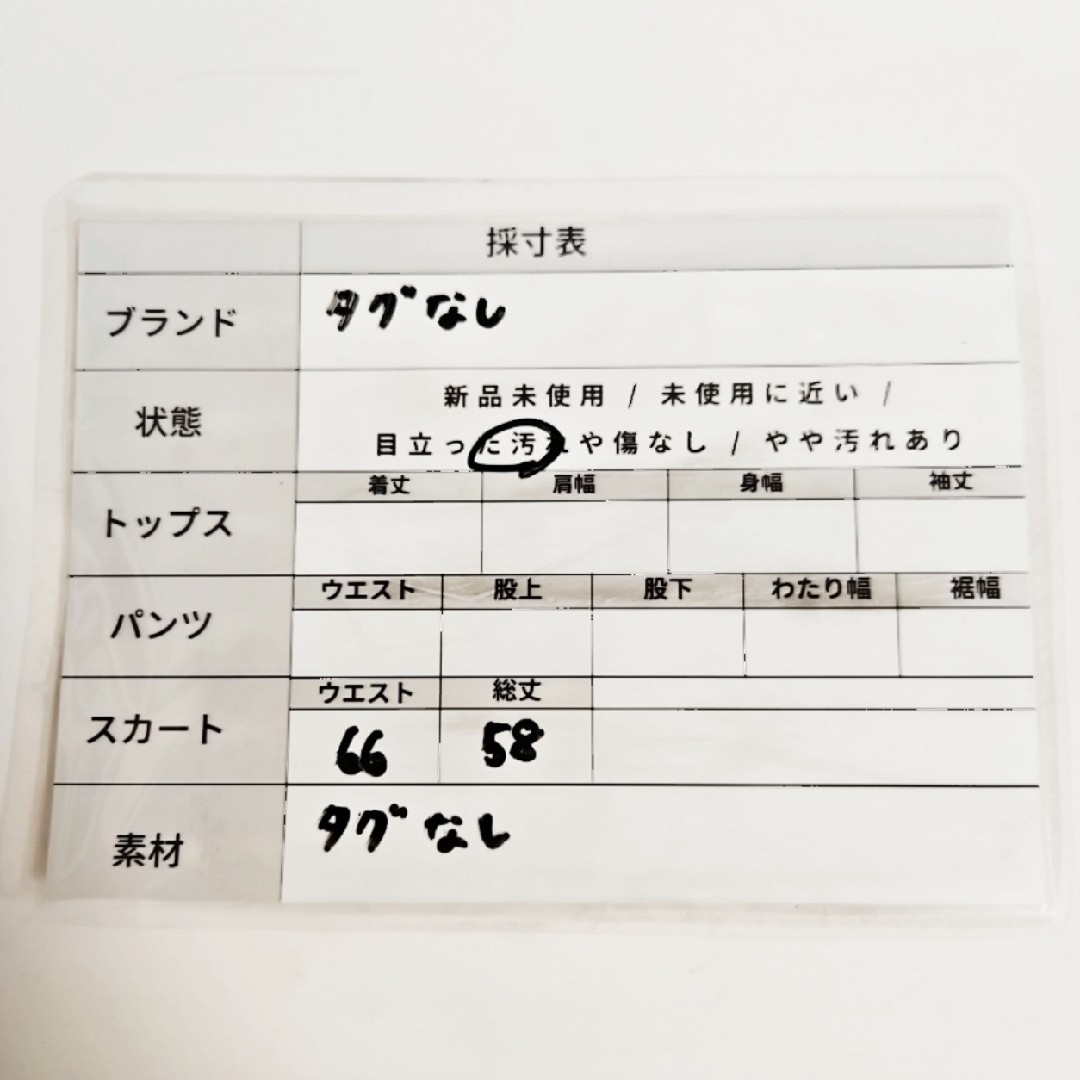 採寸表
ブランド タグなし
状態 新品未使用 / 未使用に近い /
目立った汚れや傷なし / やや汚れあり
トップス 着丈 肩幅 身幅 袖丈
パンツ ウエスト 股上 股下 わたり幅 裾幅
スカート ウエスト 総丈
66 58
素材 タグなし